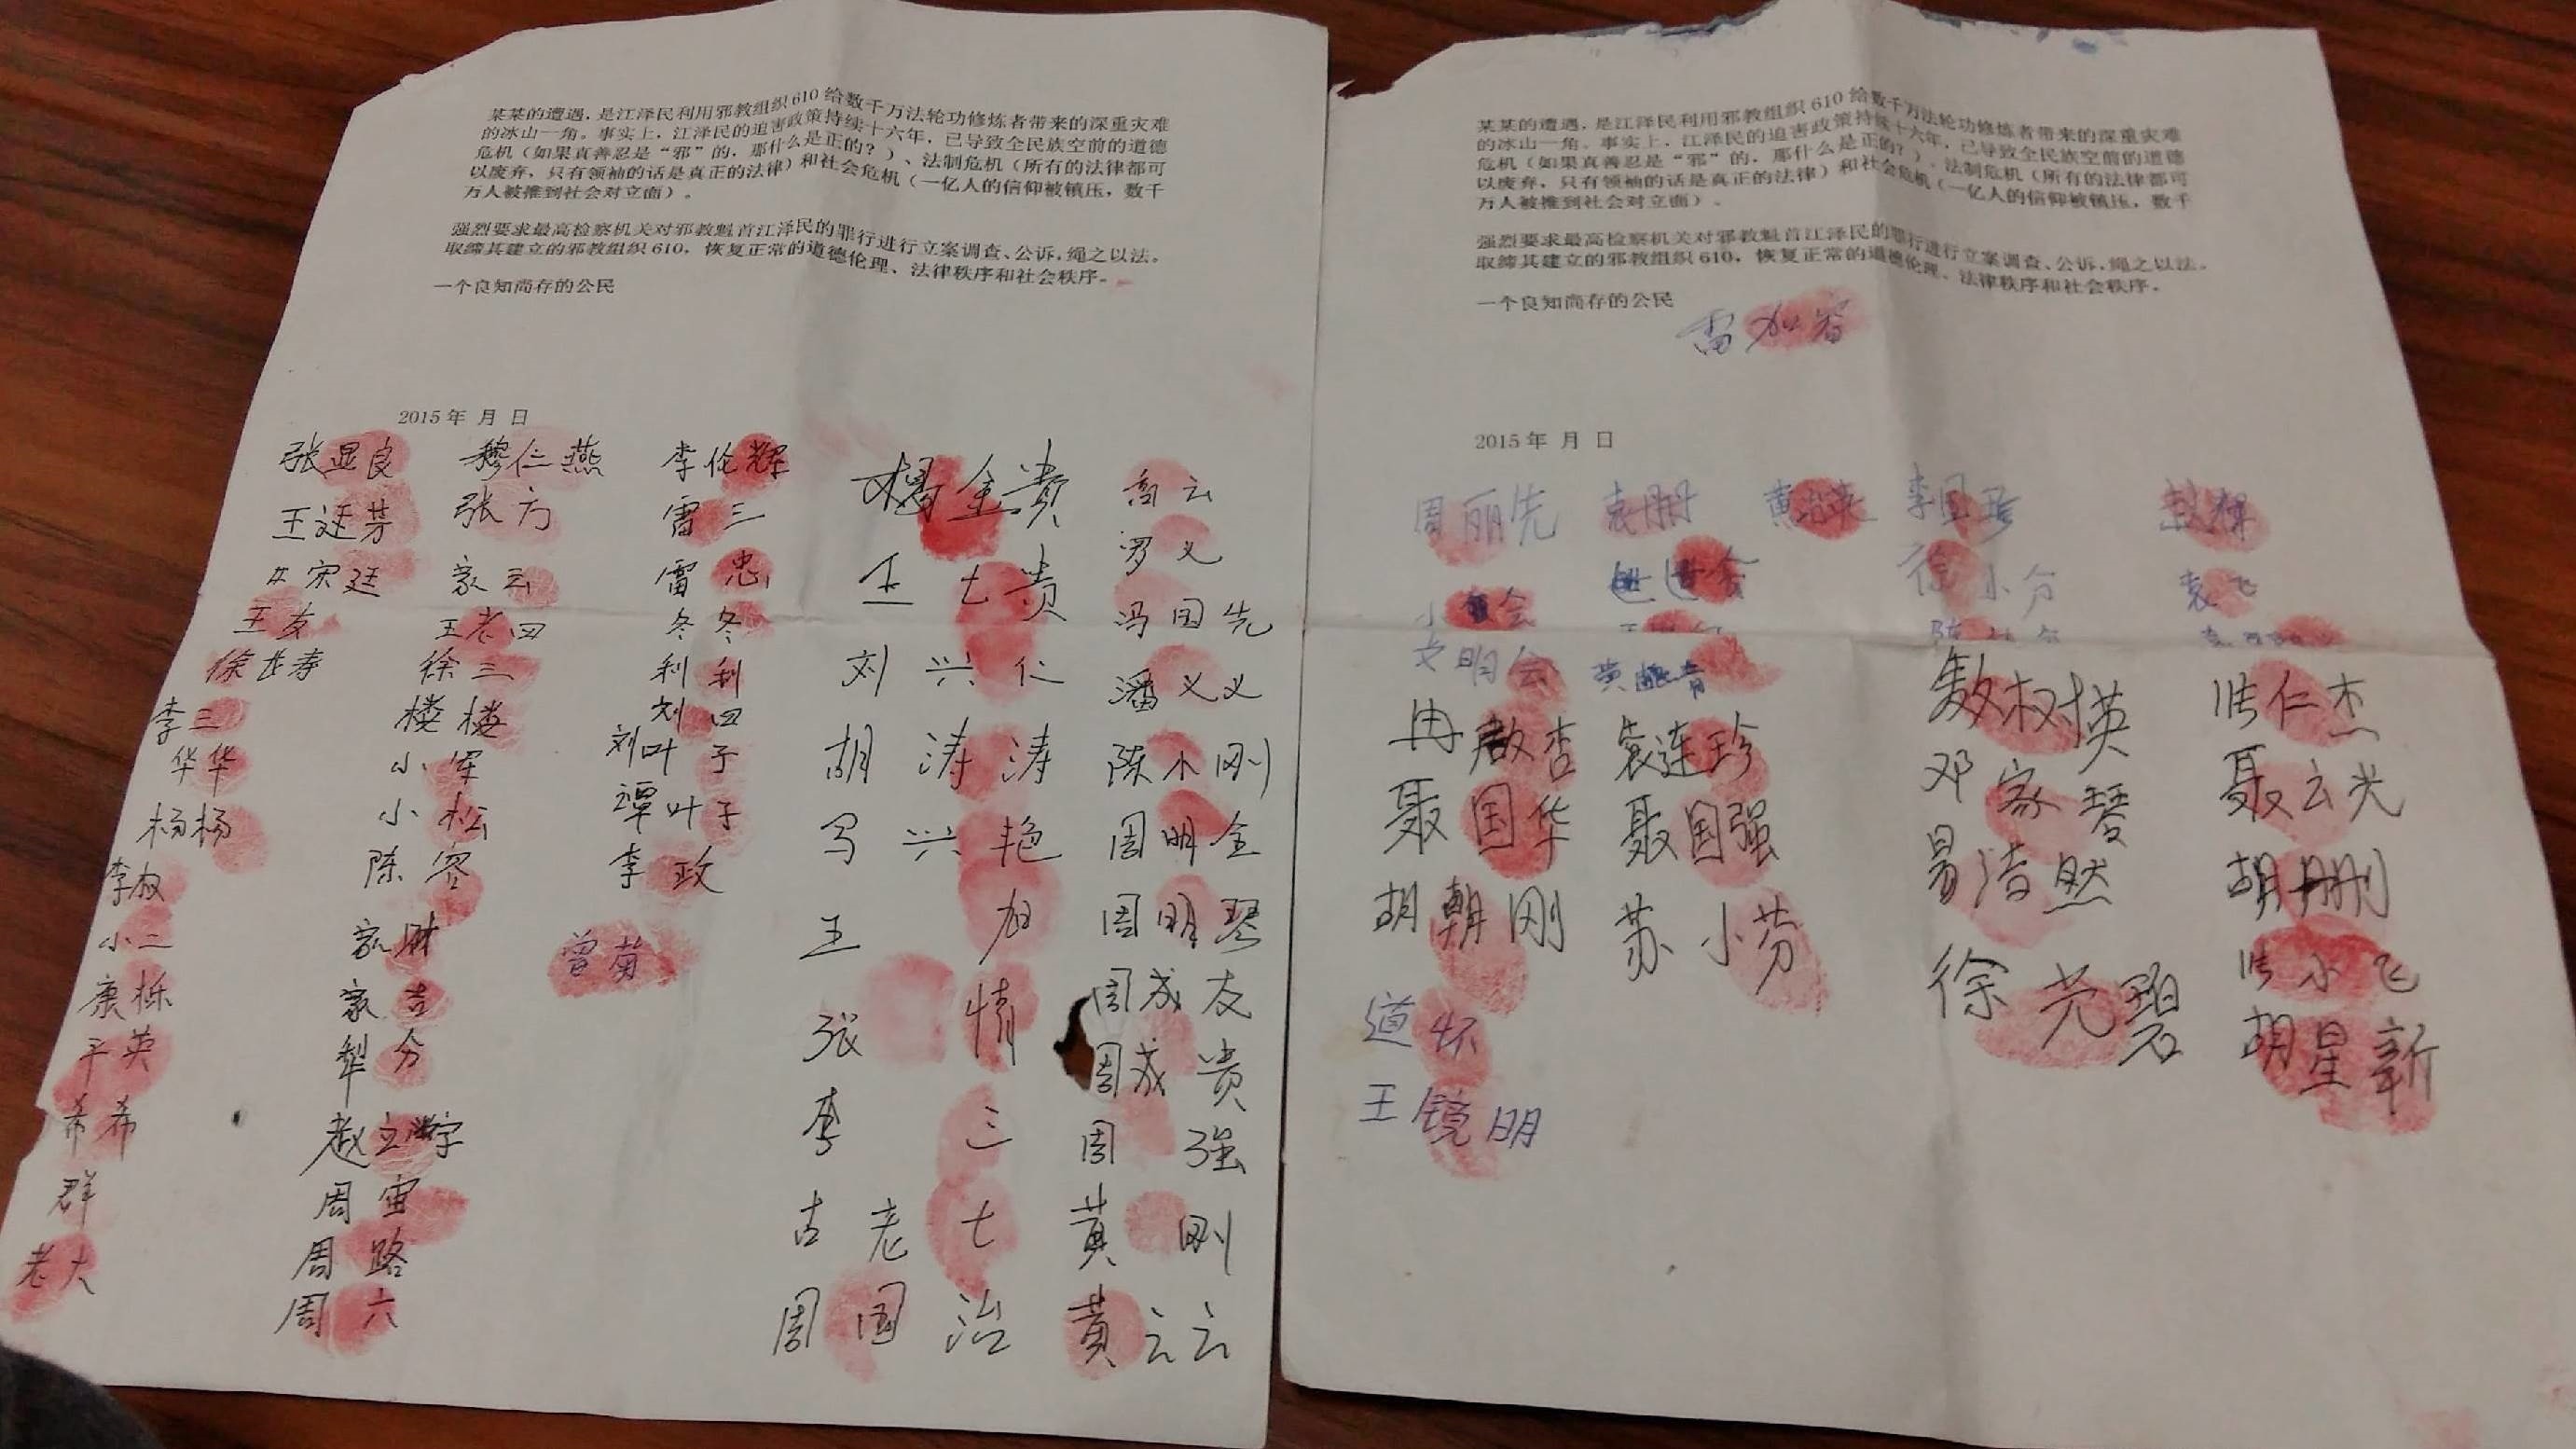 某某的遭遇，是江泽民利用邪教组织610给数千万法轮功修炼者带来的深重灾难
的冰山一角。事实上，江泽民的迫害政策持续十六年，已导致全民族空前的道德
危机（如果真善忍是“邪”的，那什么是正的？）、法制危机（所有的法律都可
以废弃，只有领袖的话是真正的法律）和社会危机（一亿人的信仰被镇压，数千
万人被推到社会对立面）。
强烈要求最高检察机关对邪教魁首江泽民的罪行进行立案调查、公诉，绳之以法。
取缔其建立的邪教组织610，恢复正常的道德伦理、法律秩序和社会秩序。
一个良知尚存的公民
2015年 月 日
张显良 穆仁燕 李伦辉
王廷芬 张方 雷三
宋廷 家云 雷忠
王友 王老四 冬冬
徐长寿 徐三 利利
李三 楼楼 刘四
华华 小军 刘叶子
杨杨 小松 谭叶子
李叔 陈容 李政
小二 家财 曾菊
康栎 家吉
平英 犁分
希希 赵立学
群 周宙
老大 周路
周六
杨金贵 高云
王七贵 罗义
刘兴仁 冯国先
胡涛涛 潘义义
马兴艳 陈小刚
王旭 周明全
张情 周明琴
李三 周成友
古老七 周成贵
周国治 周强
黄刚
黄云云
某某的遭遇，是江泽民利用邪教组织610给数千万法轮功修炼者带来的深重灾难
的冰山一角。事实上，江泽民的迫害政策持续十六年，已导致全民族空前的道德
危机（如果真善忍是“邪”的，那什么是正的？）、法制危机（所有的法律都可
以废弃，只有领袖的话是真正的法律）和社会危机（一亿人的信仰被镇压，数千
万人被推到社会对立面）。
强烈要求最高检察机关对邪教魁首江泽民的罪行进行立案调查、公诉，绳之以法。
取缔其建立的邪教组织610，恢复正常的道德伦理、法律秩序和社会秩序。
一个良知尚存的公民
雷加容
2015年 月 日
周丽先 袁朋 黄光英 李国珍 彭辉
徐小分 袁飞
文明会
冉启杏 袁连珍 敖树英 张仁杰
聂国华 聂国强 邓家琴 聂云光
胡朝刚 苏小芬 易浩然 胡朋刚
道怀 徐光碧 张小飞
王镜明 胡星新